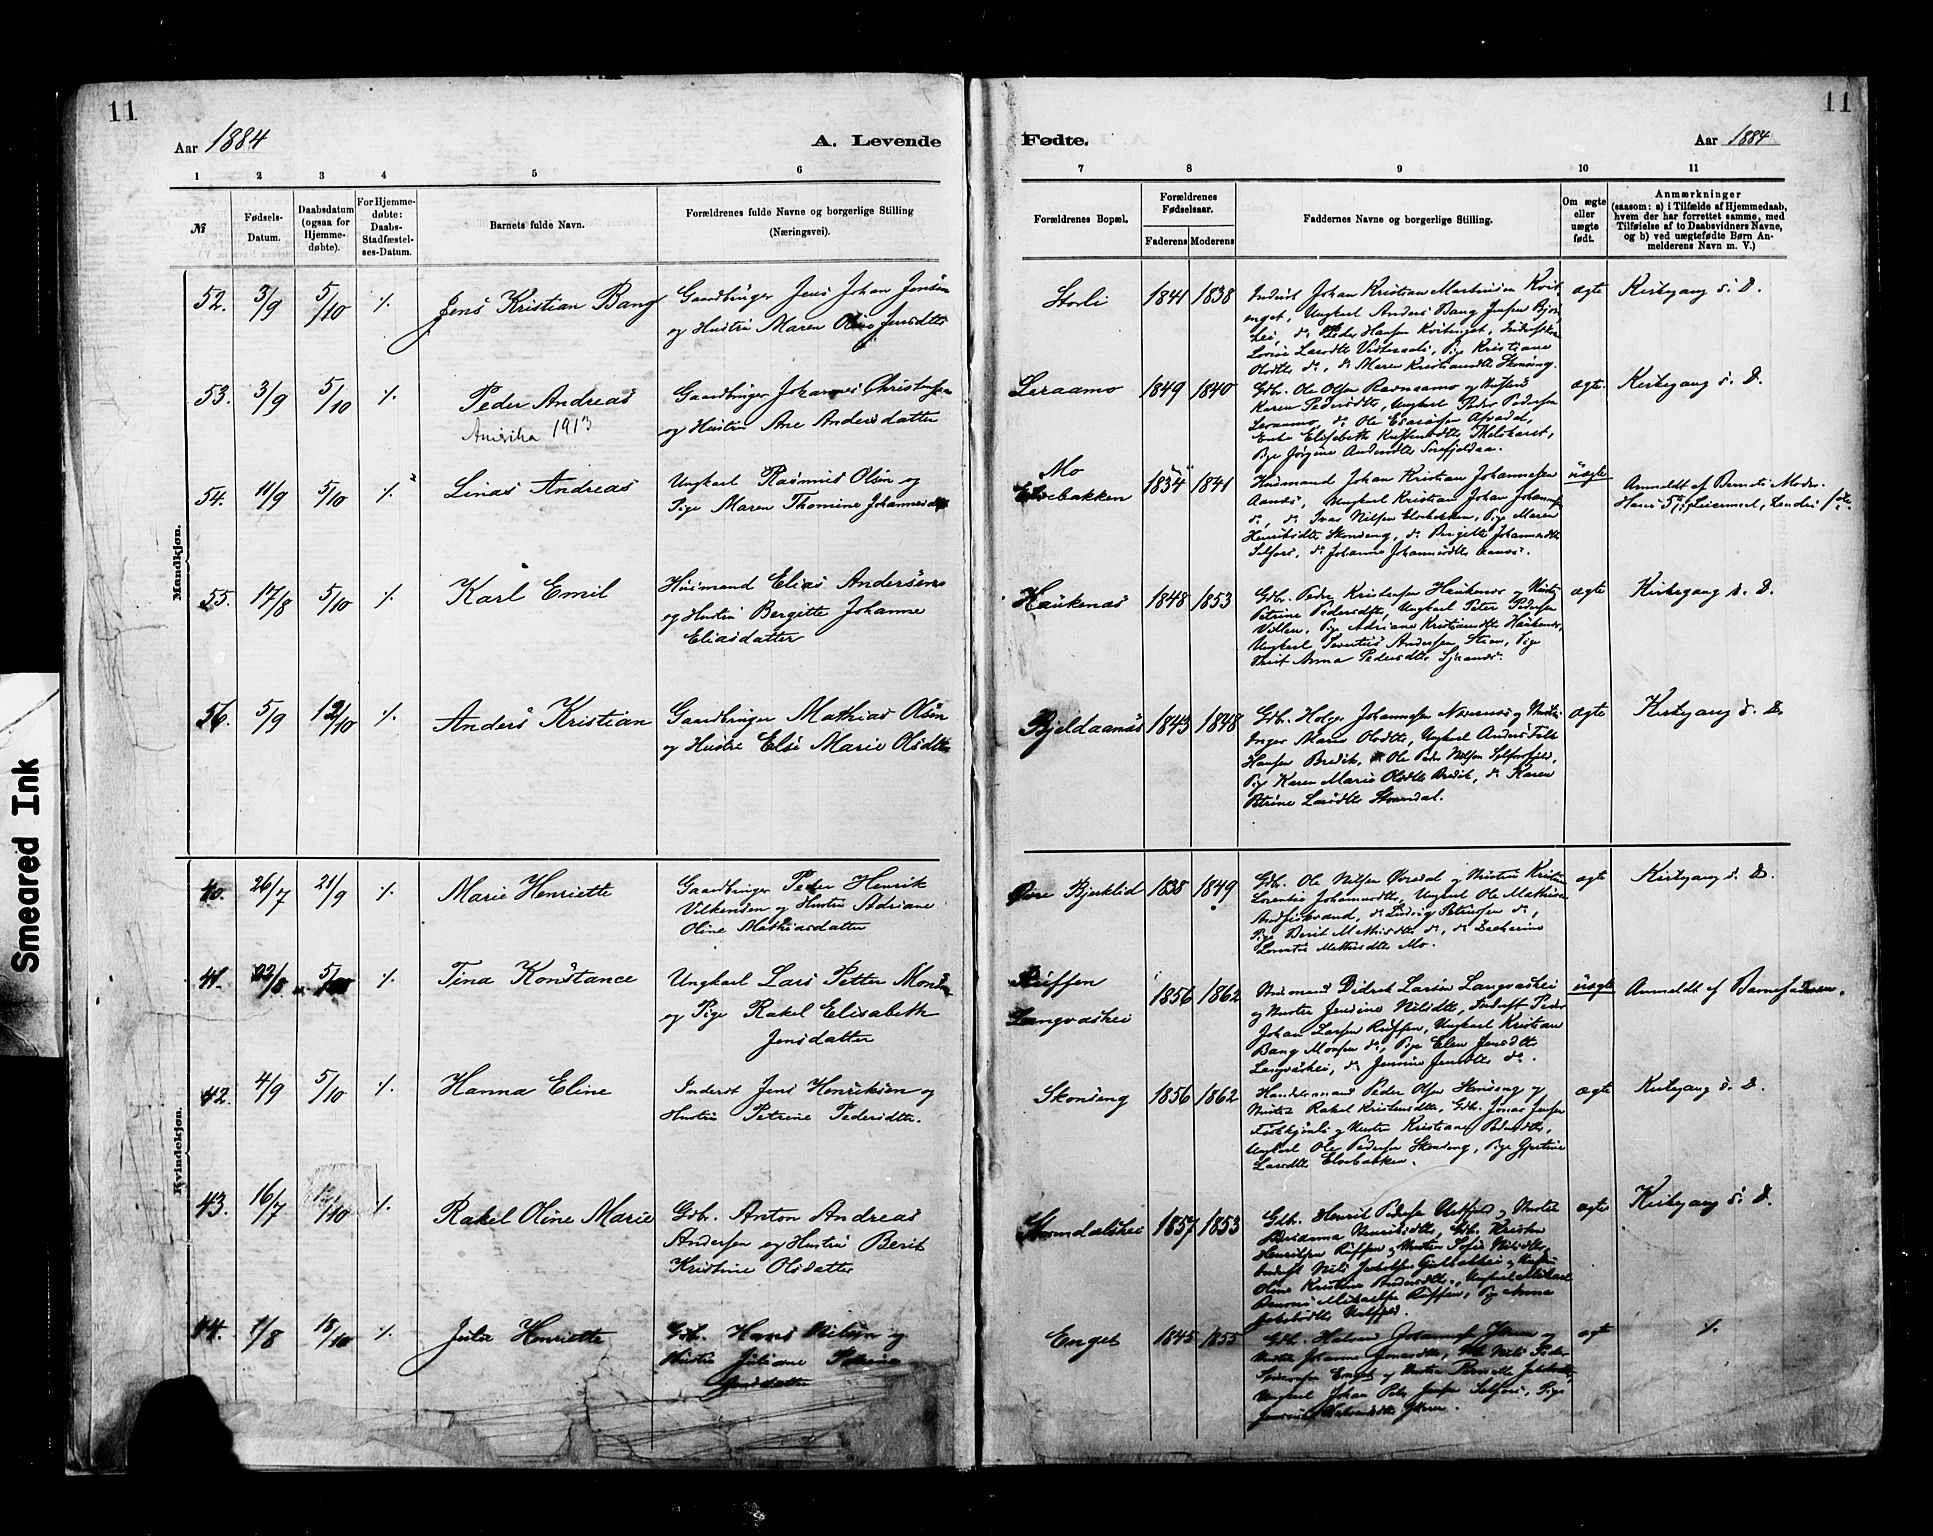 11
11
Aar 1884
A. Levende
Fødte.
Aar 1884
1 2 3 4 5 6
7 8 9 10 11
№
Fødsels-
Datum.
Daabsdatum
(ogsaa for
Hjemme-
døbte).
For Hjemme-
døbte:
Daabs-
Stadfæstel-
ses-Datum.
Barnets fulde Navn.
Forældrenes fulde Navne og borgerlige Stilling
(Næringsvei).
Forældrenes Bopæl.
Forældrenes
Fødselsaar.
Faderens Moderens
Faddernes Navne og borgerlige Stilling.
Om ægte
eller
uægte
født.
Anmærkninger
(saasom: a) i Tilfælde af Hjemmedaab,
hvem der har forrettet samme, med
Tilføielse af to Daabsvidners Navne,
og b) ved uægtefødte Børn An-
melderens Navn m. V.)
Mandkjøn.
52. 3/9 5/10 ./. Jens Kristian Bang
Gaardbruger Jens Johan Jensen
og Hustru Maren Jensdtr
Storli 1841 1838
Inderst Johan Kristian Martinsen Kvit-
enget, Ungkarl Anders Bang Jensen
d. Peder Hansen Kvitenget,
Larsdtr Pige Kristiane
Olsdtr d., d. Maren Kristiansdtr Skonseng.
ægte
Kirkegang s. D.
53. 3/9 5/10 ./. Peder Andreas
Amerika 1913
Gaardbruger Johannes Christensen
og Hustru Ane Andersdatter
Leraamo 1849 1840
Gdb. Ole Olsen Ravnaamo og Hustru
Karen Pedersdtr, Ungkarl Peder Pedersen
Leraamo, d. Ole
Enke Elisabeth
Pige Jørgine Andersdtr
ægte.
Kirkegang s. D.
54. 11/9 5/10 ./. Linas Andreas
Ungkarl Rasmus Olsen og
Pige Maren Thomine Johannesdtr
Mo
Elvebakken 1834 1841
Husmand Johan Kristian Johannesen
Aanæs, Ungkarl Kristian Johan Johannesen
d., d. Ivar Nilsen Elvebakken, Pige Maren
Henriksdtr Skonseng, d. Birgitte Johannesdtr
Selfors, d. Johanna Johannesdtr Aanæs.
uægte
Anmeldt af Barnets Moder.
Hans 5te Leiermaal, hendes 1ste.
55. 17/8 5/10 ./. Karl Emil
Husmand Elias Andersen
og Hustru Bergitte Johanne
Eliasdatter
Haukenæs 1848 1853
Gdb. Peder Kristensen Haukenæs og Hustru
Petrine Pedersdtr, Ungkarl Peter Pedersen
Pige Adriane Kristiansdtr Haukenæs,
Ungkarl Andersen Pige
Berit Anna Pedersdtr
ægte
Kirkegang s. D.
56. 5/9 12/10 ./. Anders Kristian
Gaardbruger Mathias Olsen
og Hustru Else Marie Olsdtr
Bjeldaanæs 1843 1848
Gdb. Holger Johannesen Nævernæs og Hustru
Inger Marie Olsdtr, Ungkarl Anders
Hansen Bredik, Ole Peder Nilsen Selforsfjeld,
Pige Karen Marie Olsdtr Bredik, d. Karen
Petrine Larsdtr Stormdal.
ægte
Kirkegang s. D.
Kvindekjøn.
40. 26/7 21/9 ./. Marie Henriette
Gaardbruger Peder Henrik
Vilkensen og Hustru Adriane
Oline Mathiasdatter
Øvre Bjerklid 1838 1849
Gdb. Ole Nilsen og Hustru
Lorentse Johannesdtr, Ungkarl Ole Mathisen
Andfiskvand, d. Ludvig Petersen d.,
Pige Berit Mathisdtr d., d. Zacharine
Lorentse Mathisdtr Mo.
ægte
Kirkegang s. D.
41. 22/8 5/10 ./. Tina Konstance
Ungkarl Lars Petter Monsen
og Pige Rakel Elisabeth
Jensdatter
Røffen
Langvashei 1856 1862
Husmand Didrik Larsen Langvashei
og Hustru Jensine Nilsdtr, Inderst Peder
Johan Larsen Røffen, Ungkarl Kristian
Bang Monsen d., Pige Elen Jensdtr
Langvashei, d. Jensine Jensdtr d.
uægte
Anmeldt af Barnefaderen.
42. 4/9 5/10 ./. Hanna Eline
Inderst Jens Henriksen og
Hustru Petrine Pedersdtr.
Skonseng 1856 1862
Handelsmand Peder Olsen og
Hustru Rakel Kristensdtr, Gdb. Jonas Jensen
og Hustru Kristiane Pedersdtr,
Ungkarl Ole Pedersen Skonseng, Pige
Larsdtr Elvebakken.
ægte
Kirkegang s. D.
43. 16/7 12/10 ./. Rakel Oline Marie
Gdb. Anton Andreas
Andersen og Hustru Berit
Kristine Olsdatter
Stormdalshei 1857 1853
Gdb. Henrik Pedersen og Hustru
Henriksdtr, Gdb. Kristen
Henriksen Røffen og Hustru Sofie Nilsdtr,
Inderst Nils Jakobsen og Hustru
Oline Kristine Andersdtr, Ungkarl
Mikaelsen Røffen, Pige Anna
Jakobsdtr
ægte
Kirkegang s. D.
44. 1/8 18/10 ./. Julie Henriette
Gdb. Hans Nilsen og
Hustru Juliane
Jensdatter
Enget 1845 1855
Gdb. Halvard Johannesen Yttren og
Hustru Johanna Jonasdtr, Nils Peder
Enget og Hustru Pernille
Ungkarl Johan Peter Jensen Selfors, Pige
Halvardsdtr Yttren.
ægte
./.
Smeared Ink